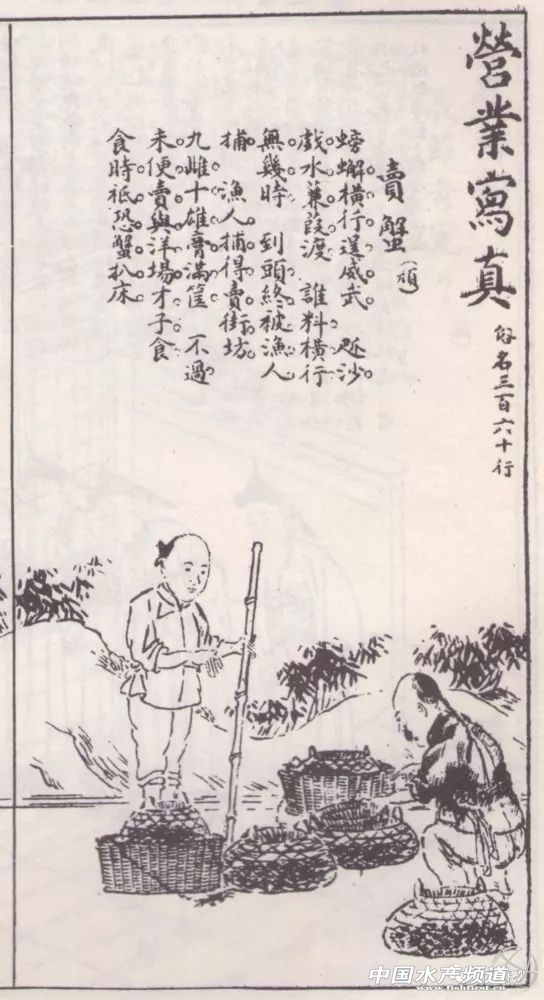 營業寫真
俗名三百六十行
賣蟹(頑)
螃蠏橫行逞威武 爬沙
戲水蒹葭渡 誰料橫行
無幾時 到頭終被漁人
捕 漁人捕得賣街坊
九雌十雄膏滿筐 不過
未便賣與洋場才子食
食時祇恐蟹扒床
中国水产频道
www.fishfirst.cn